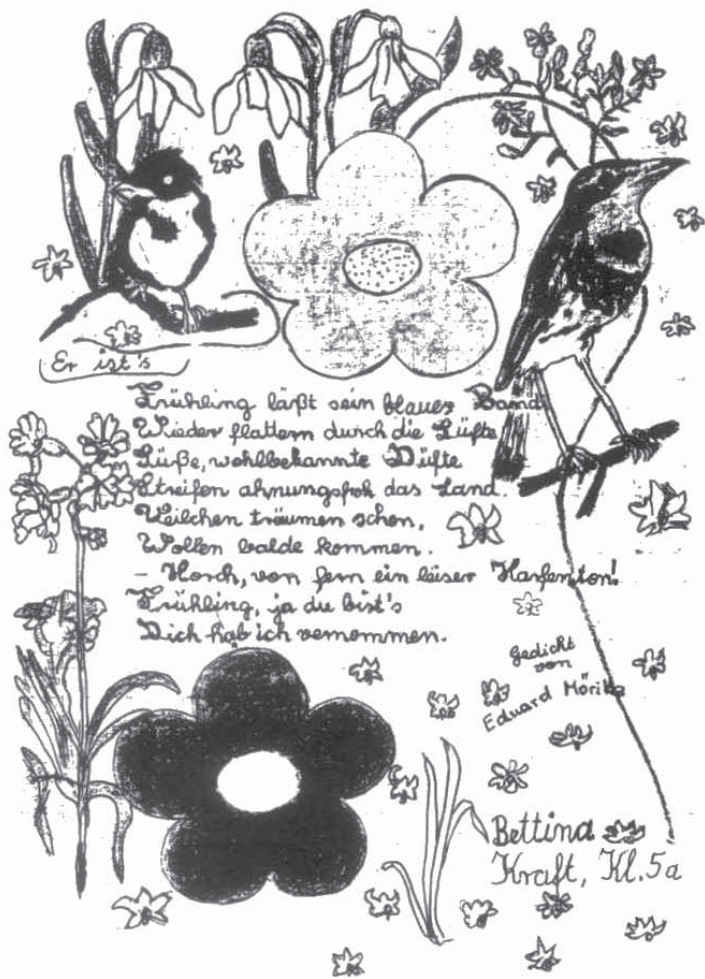 Er ist's
Frühling läßt sein blaues Band
Wieder flattern durch die Lüfte
Süße, wohlbekannte Düfte
Streifen ahnungsfoh das Land.
Veilchen träumen schon,
Wollen balde kommen.
- Horch, von fern ein leiser Harfenton!
Frühling, ja du bist's
Dich hab ich vernommen.
Gedicht
von
Eduard Mörike
Bettina
Kraft, Kl. 5a